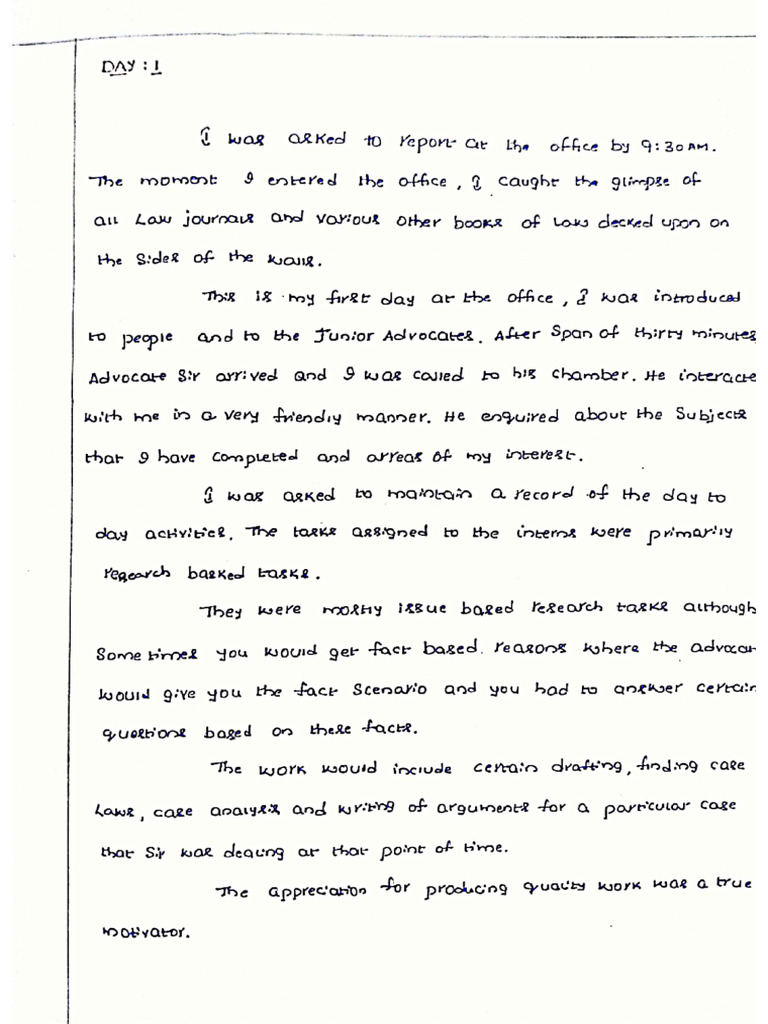 DAY : 1
I was asked to report at the office by 9:30 AM.
The moment I entered the office, I caught the glimpse of
all Law journals and various other books of Law decked upon on
the sides of the walls.
This is my first day at the office, I was introduced
to people and to the Junior Advocates. After Span of thirty minutes
Advocate Sir arrived and I was called to his chamber. He interacte
with me in a very friendly manner. He enquired about the Subjects
that I have completed and arreas of my interest.
I was asked to maintain a record of the day to
day activities. The tasks assigned to the interns were primarily
research basked tasks.
They were mostly issue based research tasks although
Sometimes you would get fact based reasons where the advocat
would give you the fact scenario and you had to answer certain
questions based on these facts.
The work would include certain drafting, finding case
Laws, case analysis and writing of arguments for a particular case
that Sir was dealing at that point of time.
The appreciation for producing quality work was a true
motivator.